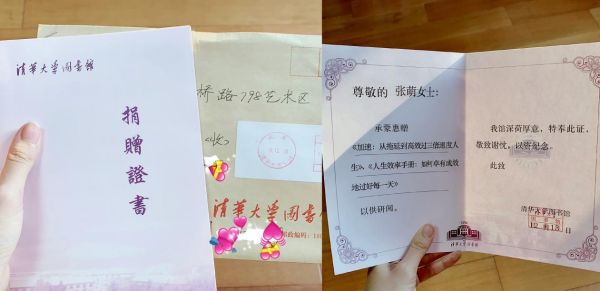 清華大学图書館
捐
贈
證
書
桥路798艺术区
(收)
清華大学图書館
邮政编码:
尊敬的 张萌女士:
承蒙惠赠
《加速:从拖延到高效过三倍速度人
生》、《人生效率手册:如何卓有成效
地过好每一天》
以供研阅。
我馆深荷厚意,特奉此证,
敬致谢忱,以资纪念。
此致
清华大学图书馆
12月18日
清華大学图書館